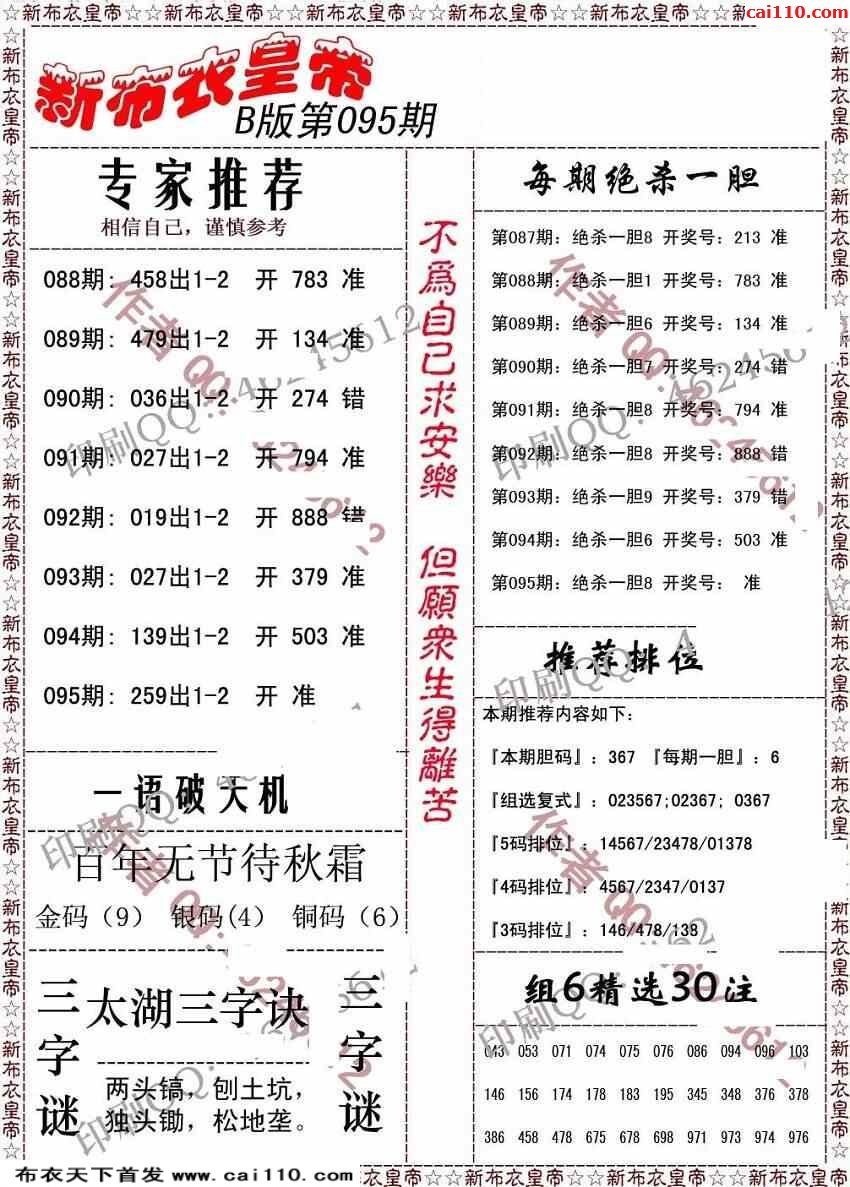 ☆☆新布衣皇帝☆☆新布衣皇帝☆☆新布衣皇帝☆☆新布衣皇帝☆☆新布衣皇帝☆☆新布衣皇帝☆☆
cai110.com
新布衣皇帝
B版第095期
专家推荐
相信自己，谨慎参考
088期: 458出1-2 开 783 准
089期: 479出1-2 开 134 准
090期: 036出1-2 开 274 错
091期: 027出1-2 开 794 准
092期: 019出1-2 开 888 错
093期: 027出1-2 开 379 准
094期: 139出1-2 开 503 准
095期: 259出1-2 开 准
一语破天机
百年无节待秋霜
金码（9） 银码(4） 铜码（6）
三字谜
太湖三字诀
两头镐，刨土坑，
独头锄，松地垄。
三字谜
不為自己求安樂 但願眾生得離苦
每期绝杀一胆
第087期: 绝杀一胆8 开奖号: 213 准
第088期: 绝杀一胆1 开奖号: 783 准
第089期: 绝杀一胆6 开奖号: 134 准
第090期: 绝杀一胆7 开奖号: 274 错
第091期: 绝杀一胆8 开奖号: 794 准
第092期: 绝杀一胆8 开奖号: 888 错
第093期: 绝杀一胆9 开奖号: 379 错
第094期: 绝杀一胆6 开奖号: 503 准
第095期: 绝杀一胆8 开奖号: 准
推荐排位
本期推荐内容如下:
『本期胆码』: 367 『每期一胆』: 6
『组选复式』: 023567;02367; 0367
『5码排位』: 14567/23478/01378
『4码排位』: 4567/2347/0137
『3码排位』: 146/478/138
组6精选30注
043 053 071 074 075 076 086 094 096 103
146 156 174 178 183 195 345 348 376 378
386 458 478 675 678 698 971 973 974 976
布衣天下首发 www.cai110.com
☆衣皇帝☆☆新布衣皇帝☆☆新布衣皇帝☆☆新布衣皇帝☆☆